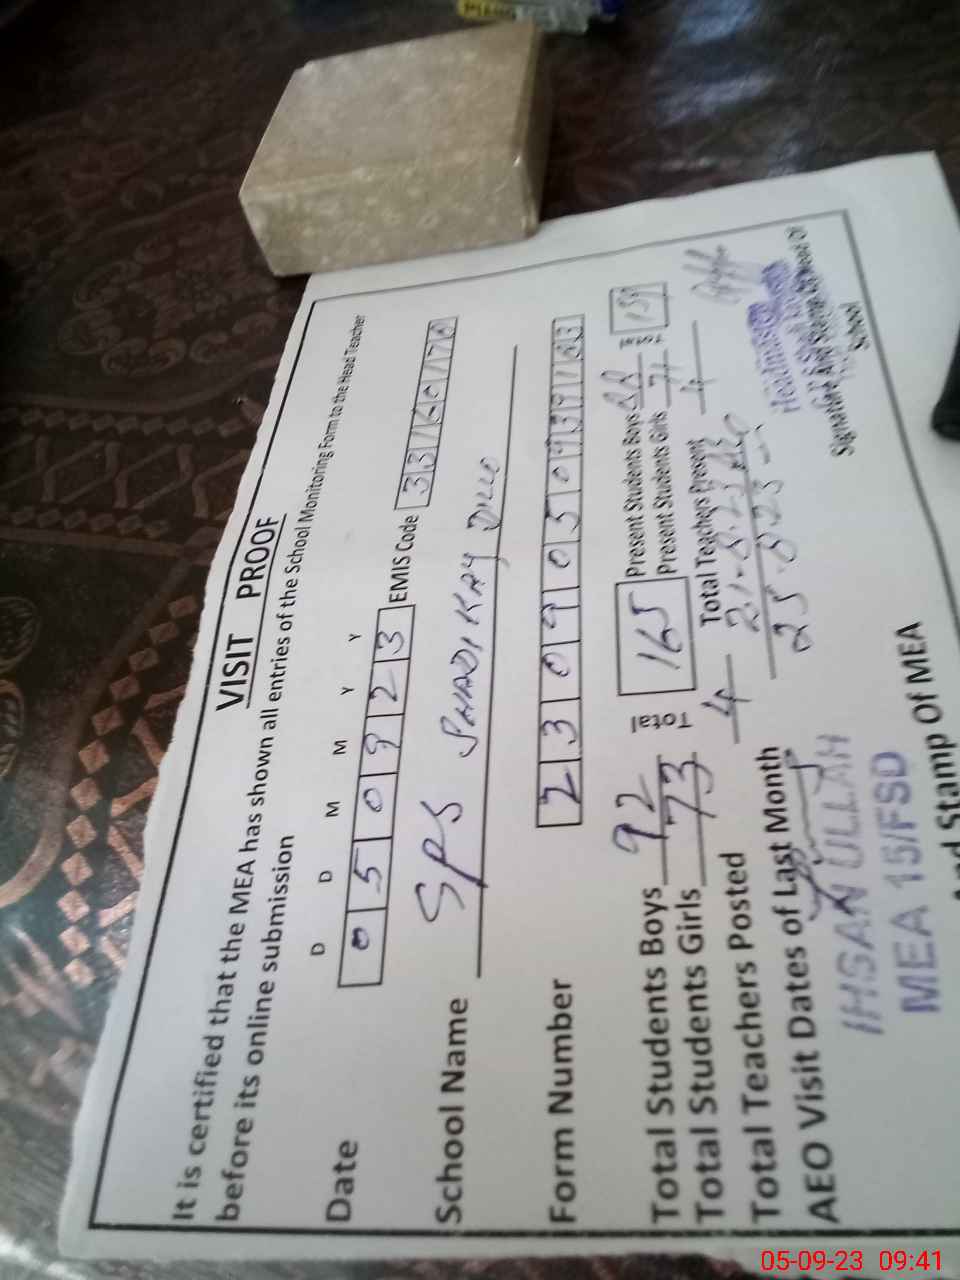 VISIT PROOF
It is certified that the MEA has shown all entries of the School Monitoring Form to the Head Teacher
before its online submission
D D M M Y Y
Date 0 5 0 9 2 3 EMIS Code 3 3 1 6 0 1 7 6
School Name GPS SHADI KAY
Form Number 2 3 0 9 0 5 0 9 3 9 1
Total Students Boys 92 Total 165 Present Students Boys 88
Total Students Girls 73 Present Students Girls 71
Total Teachers Posted 4 Total Teachers Present 4
AEO Visit Dates of Last Month
25.8.23
IHSAN ULLAH
MEA 15/FSD
Signature And Stamp Of MEA
Signature And Stamp Of Head Of
School
05-09-23 09:41